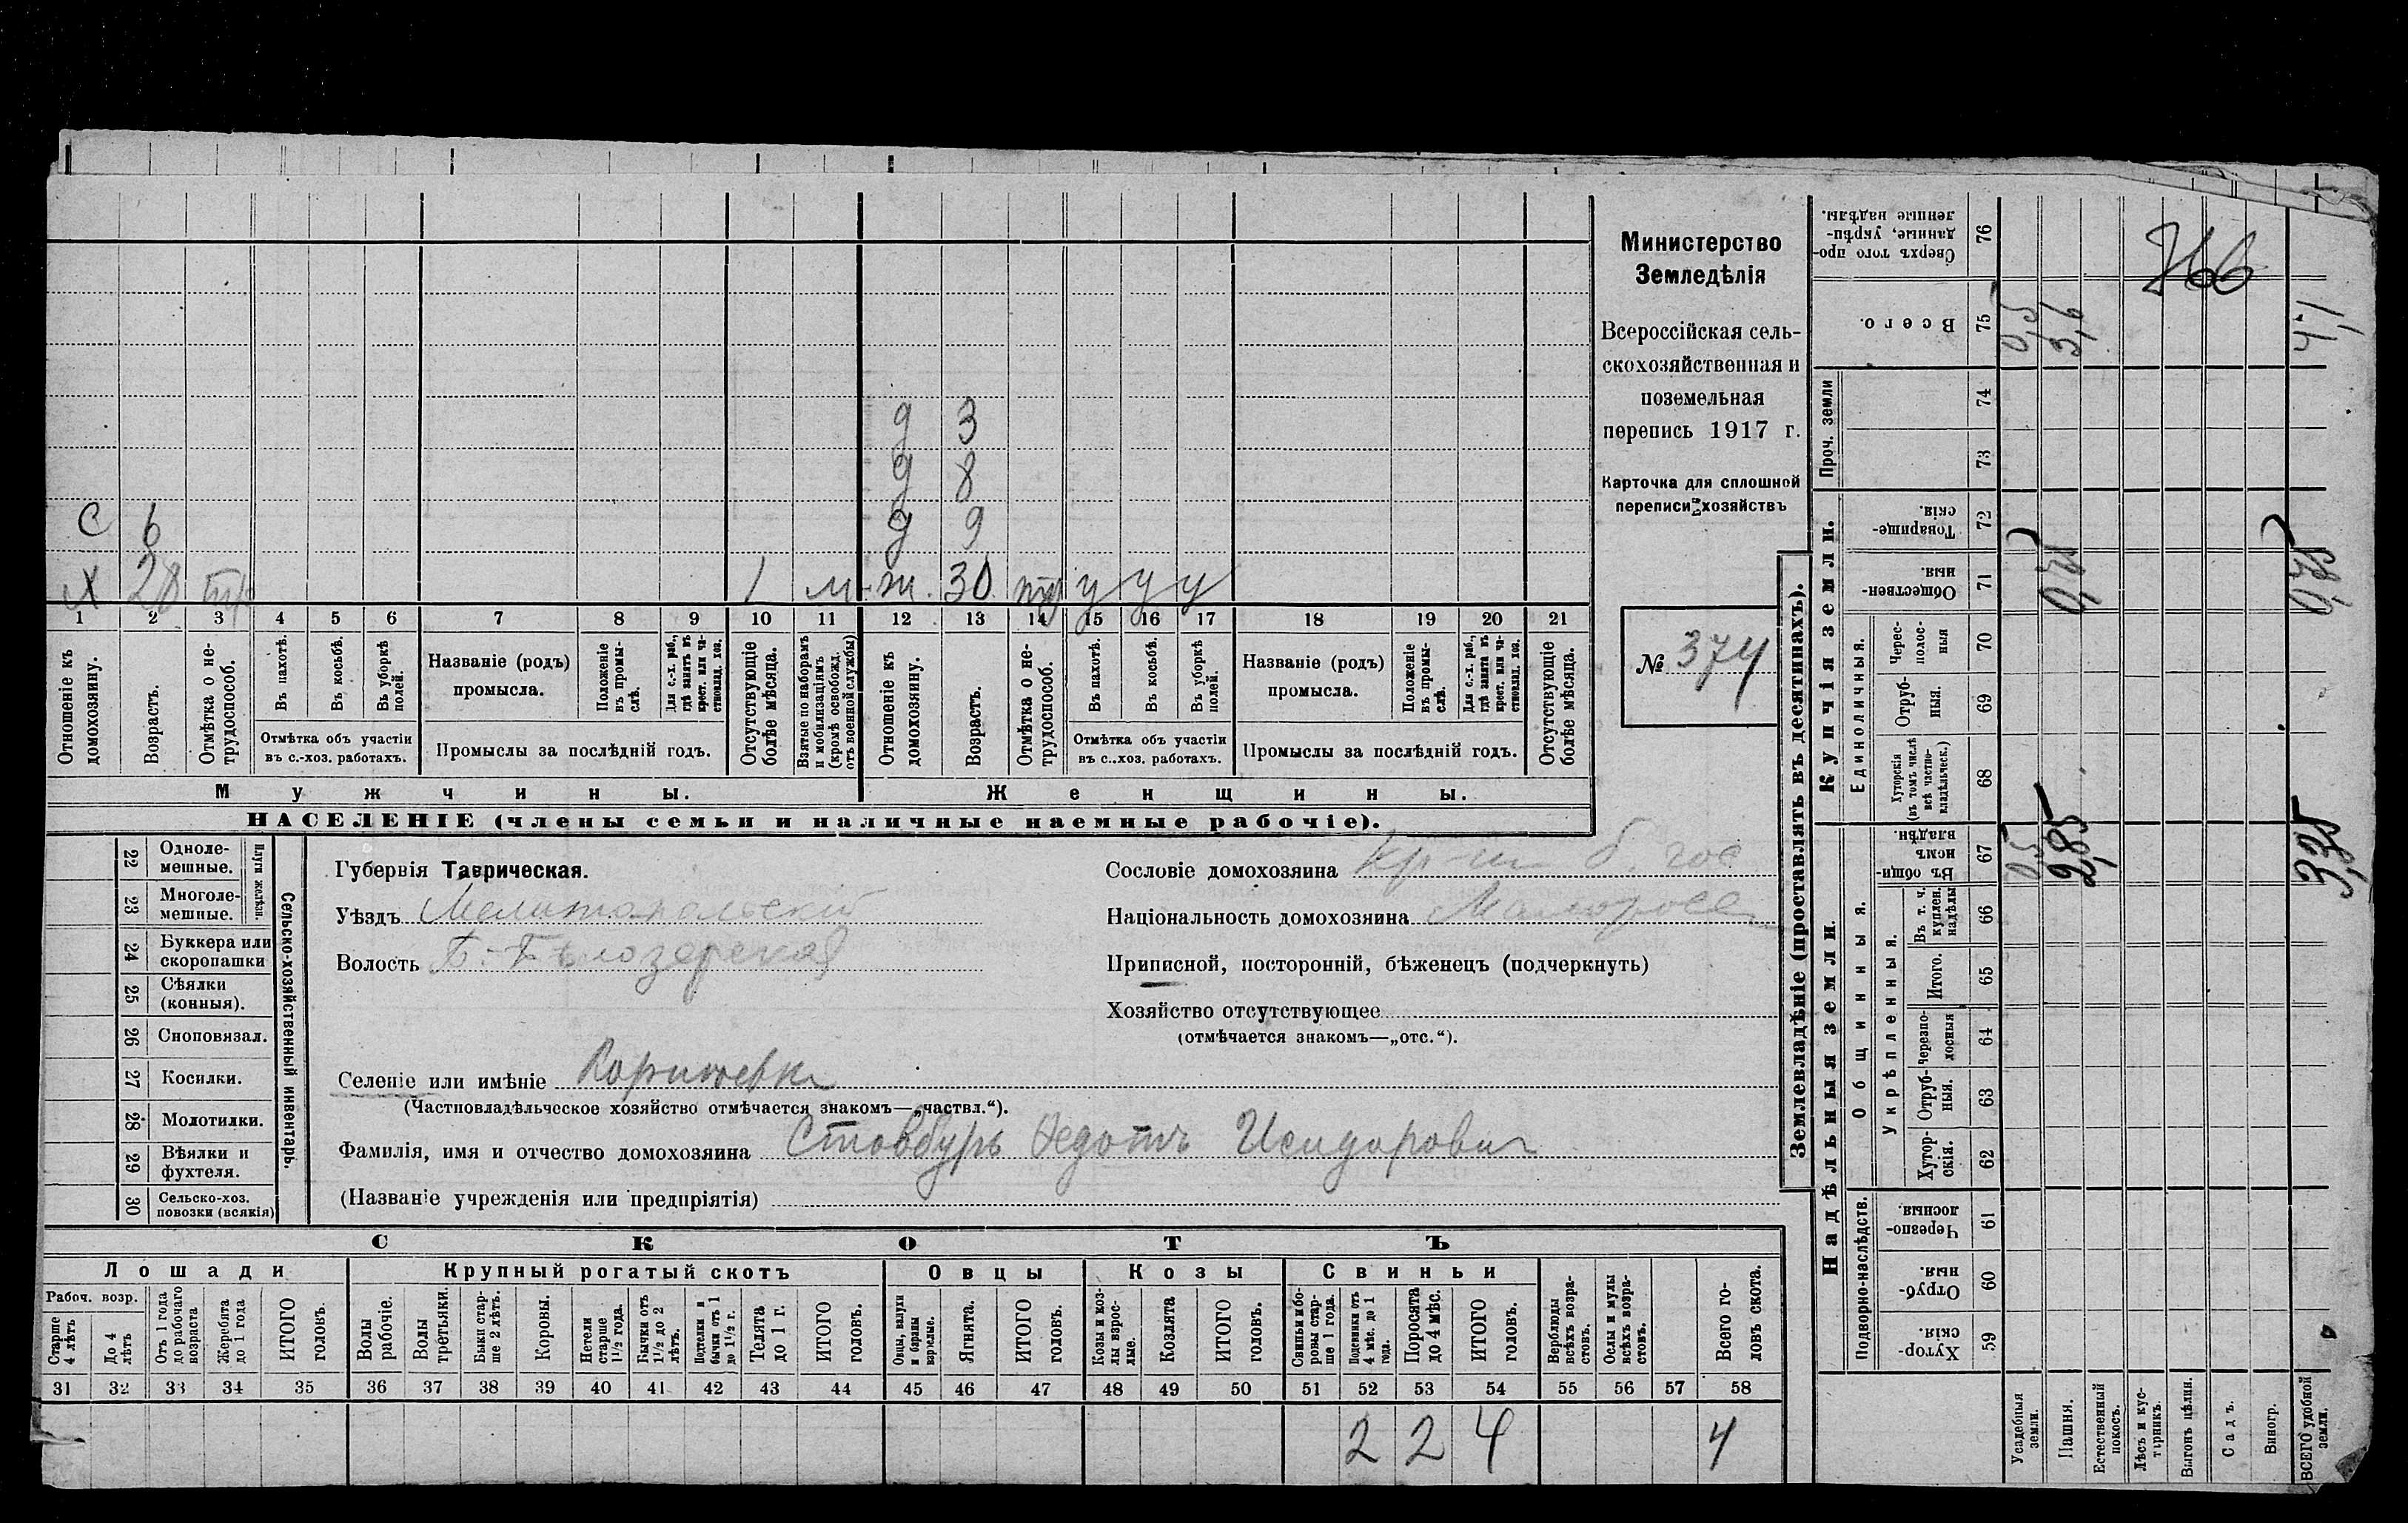 Министерство
Земледѣлія
Всероссійская сель-
скохозяйственная и
поземельная
перепись 1917 г.
Карточка для сплошной
переписи хозяйствъ
№ 374
766
д 3
д 8
С 6 д 9
Х 28 1 м ж. 30 у у у
1 2 3 4 5 6 7 8 9 10 11 12 13 14 15 16 17 18 19 20 21
Отношеніе къ домохозяину.
Возрастъ.
Отмѣтка о не-трудоспособ.
Въ пахотѣ.
Въ косьбѣ.
Въ уборкѣ полей.
Отмѣтка объ участіи въ с.-хоз. работахъ.
Названіе (родъ) промысла.
Положеніе въ промы-слѣ.
Для с.-х. раб., гдѣ занятъ въ крест. или ча-стновлад. хоз.
Промыслы за послѣдній годъ.
Отсутствующіе болѣе мѣсяца.
Взятые по наборамъ и мобилизаціямъ (кромѣ освобожд. отъ военной службы)
Отношеніе къ домохозяину.
Возрастъ.
Отмѣтка о не-трудоспособ.
Въ пахотѣ.
Въ косьбѣ.
Въ уборкѣ полей.
Отмѣтка объ участіи въ с..хоз. работахъ.
Названіе (родъ) промысла.
Положеніе въ промы-слѣ.
Для с.-х. раб., гдѣ занята въ крест. или ча-стновлад. хоз.
Промыслы за послѣдній годъ.
Отсутствующіе болѣе мѣсяца.
Мужчины. Женщины.
НАСЕЛЕНІЕ (члены семьи и наличные наемные рабочіе).
22 Одноле-мешные.
23 Многоле-мешные.
Плуги желѣзн.
24 Буккера или скоропашки
25 Сѣялки (конныя).
26 Сноповязал.
27 Косилки.
28 Молотилки.
29 Вѣялки и фухтеля.
30 Сельско-хоз. повозки (всякія)
Сельско-хозяйственный инвентарь.
Губернія Таврическая.
Уѣздъ Мелитопольскій
Волость Б.-Бѣлозерская
Сословіе домохозяина Кр-ин б. гос
Національность домохозяина Малоросс
Приписной, посторонній, бѣженецъ (подчеркнуть)
Хозяйство отсутствующее
(отмѣчается знакомъ—„отс.“).
Селеніе или имѣніе
(Частновладѣльческое хозяйство отмѣчается знакомъ—„частвл.“).
Фамилія, имя и отчество домохозяина Стовбурь Федотъ Исидорович
(Названіе учрежденія или предпріятія)
СКОТЪ
Лошади Крупный рогатый скотъ Овцы Козы Свиньи
Рабоч. возр.
Старше 4 лѣтъ
До 4 лѣтъ
Отъ 1 года до рабочаго возраста
Жеребята до 1 года
ИТОГО головъ.
Волы рабочіе.
Волы третьяки.
Быки стар-ше 2 лѣтъ.
Коровы.
Нетели старше 1½ года.
Бычки отъ 1½ до 2 лѣтъ.
Подтелки и бычки отъ 1 до 1½ г.
Телята до 1 г.
ИТОГО головъ.
Овцы, валухи и бараны взрослые.
Ягнята.
ИТОГО головъ.
Козы и коз-лы взрос-лые.
Козлята
ИТОГО головъ.
Свиньи и бо-ровы стар-ше 1 года.
Подсвинки отъ 4 мѣс. до 1 года.
Поросята до 4 мѣс.
ИТОГО головъ.
Верблюды всѣхъ возра-стовъ.
Ослы и мулы всѣхъ возра-стовъ.
Всего го-ловъ скота.
31 32 33 34 35 36 37 38 39 40 41 42 43 44 45 46 47 48 49 50 51 52 53 54 55 56 57 58
2 2 4 4
Землевладѣніе (проставлять въ десятинахъ).
Надѣльныя земли. Купчія земли. Проч. земли
Подворно-наслѣдств.
Общинныя.
Укрѣпленныя.
Единоличныя.
Хутор-скія. 59
Отруб-ныя. 60
Черезпо-лосныя. 61
Хутор-скія. 62
Отруб-ныя. 63
Черезпо-лосныя 64
Итого. 65
Въ т. ч. куплен. надѣлы 66
Въ общи-номъ владѣн. 67
Хуторскія (въ томъ числѣ всѣ частно-владѣльческ.) 68
Отруб-ныя. 69
Черес-полос-ныя 70
Обществен-ныя. 71
Товарище-скія. 72
73
74
Всего. 75
Сверхъ того про-данные, укрѣп-ленные надѣлы. 76
Усадебныя земли. 0,5 0,5
Пашня. 2,85 3,6
Естественный покосъ.
Лѣсъ и кус-тарникъ.
Выгонъ цѣлин.
Садъ.
Виногр.
ВСЕГО удобной земли. 3,35 4,1